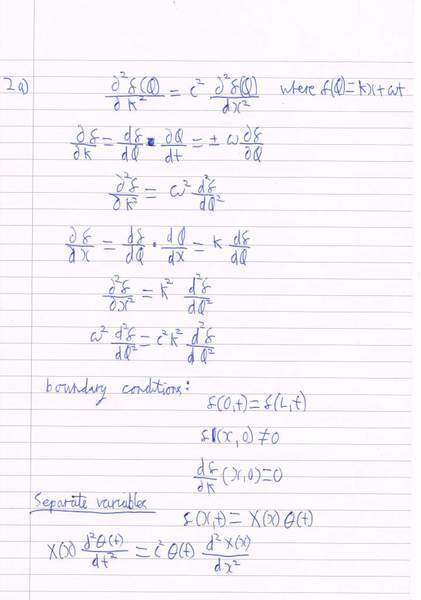 2a) ∂²f(Q)/∂k² = c² ∂²f(Q)/dx² where f(Q)=kx+ωt
∂f/∂k = df/dQ • ∂Q/dt = ± ω ∂f/∂Q
∂²f/∂k² = ω² d²f/dQ²
∂f/dx = df/dQ • dQ/dx = k df/dQ
∂²f/∂x² = k² d²f/dQ²
ω² d²f/dQ² = c²k² d²f/dQ²
boundary conditions:
f(0,t)=f(L,t)
f(x,0)≠0
df/∂k (x,0)=0
Separate variables
f(x,t)= X(x) θ(t)
X(x) d²θ(t)/dt² = c² θ(t) d²X(x)/dx²